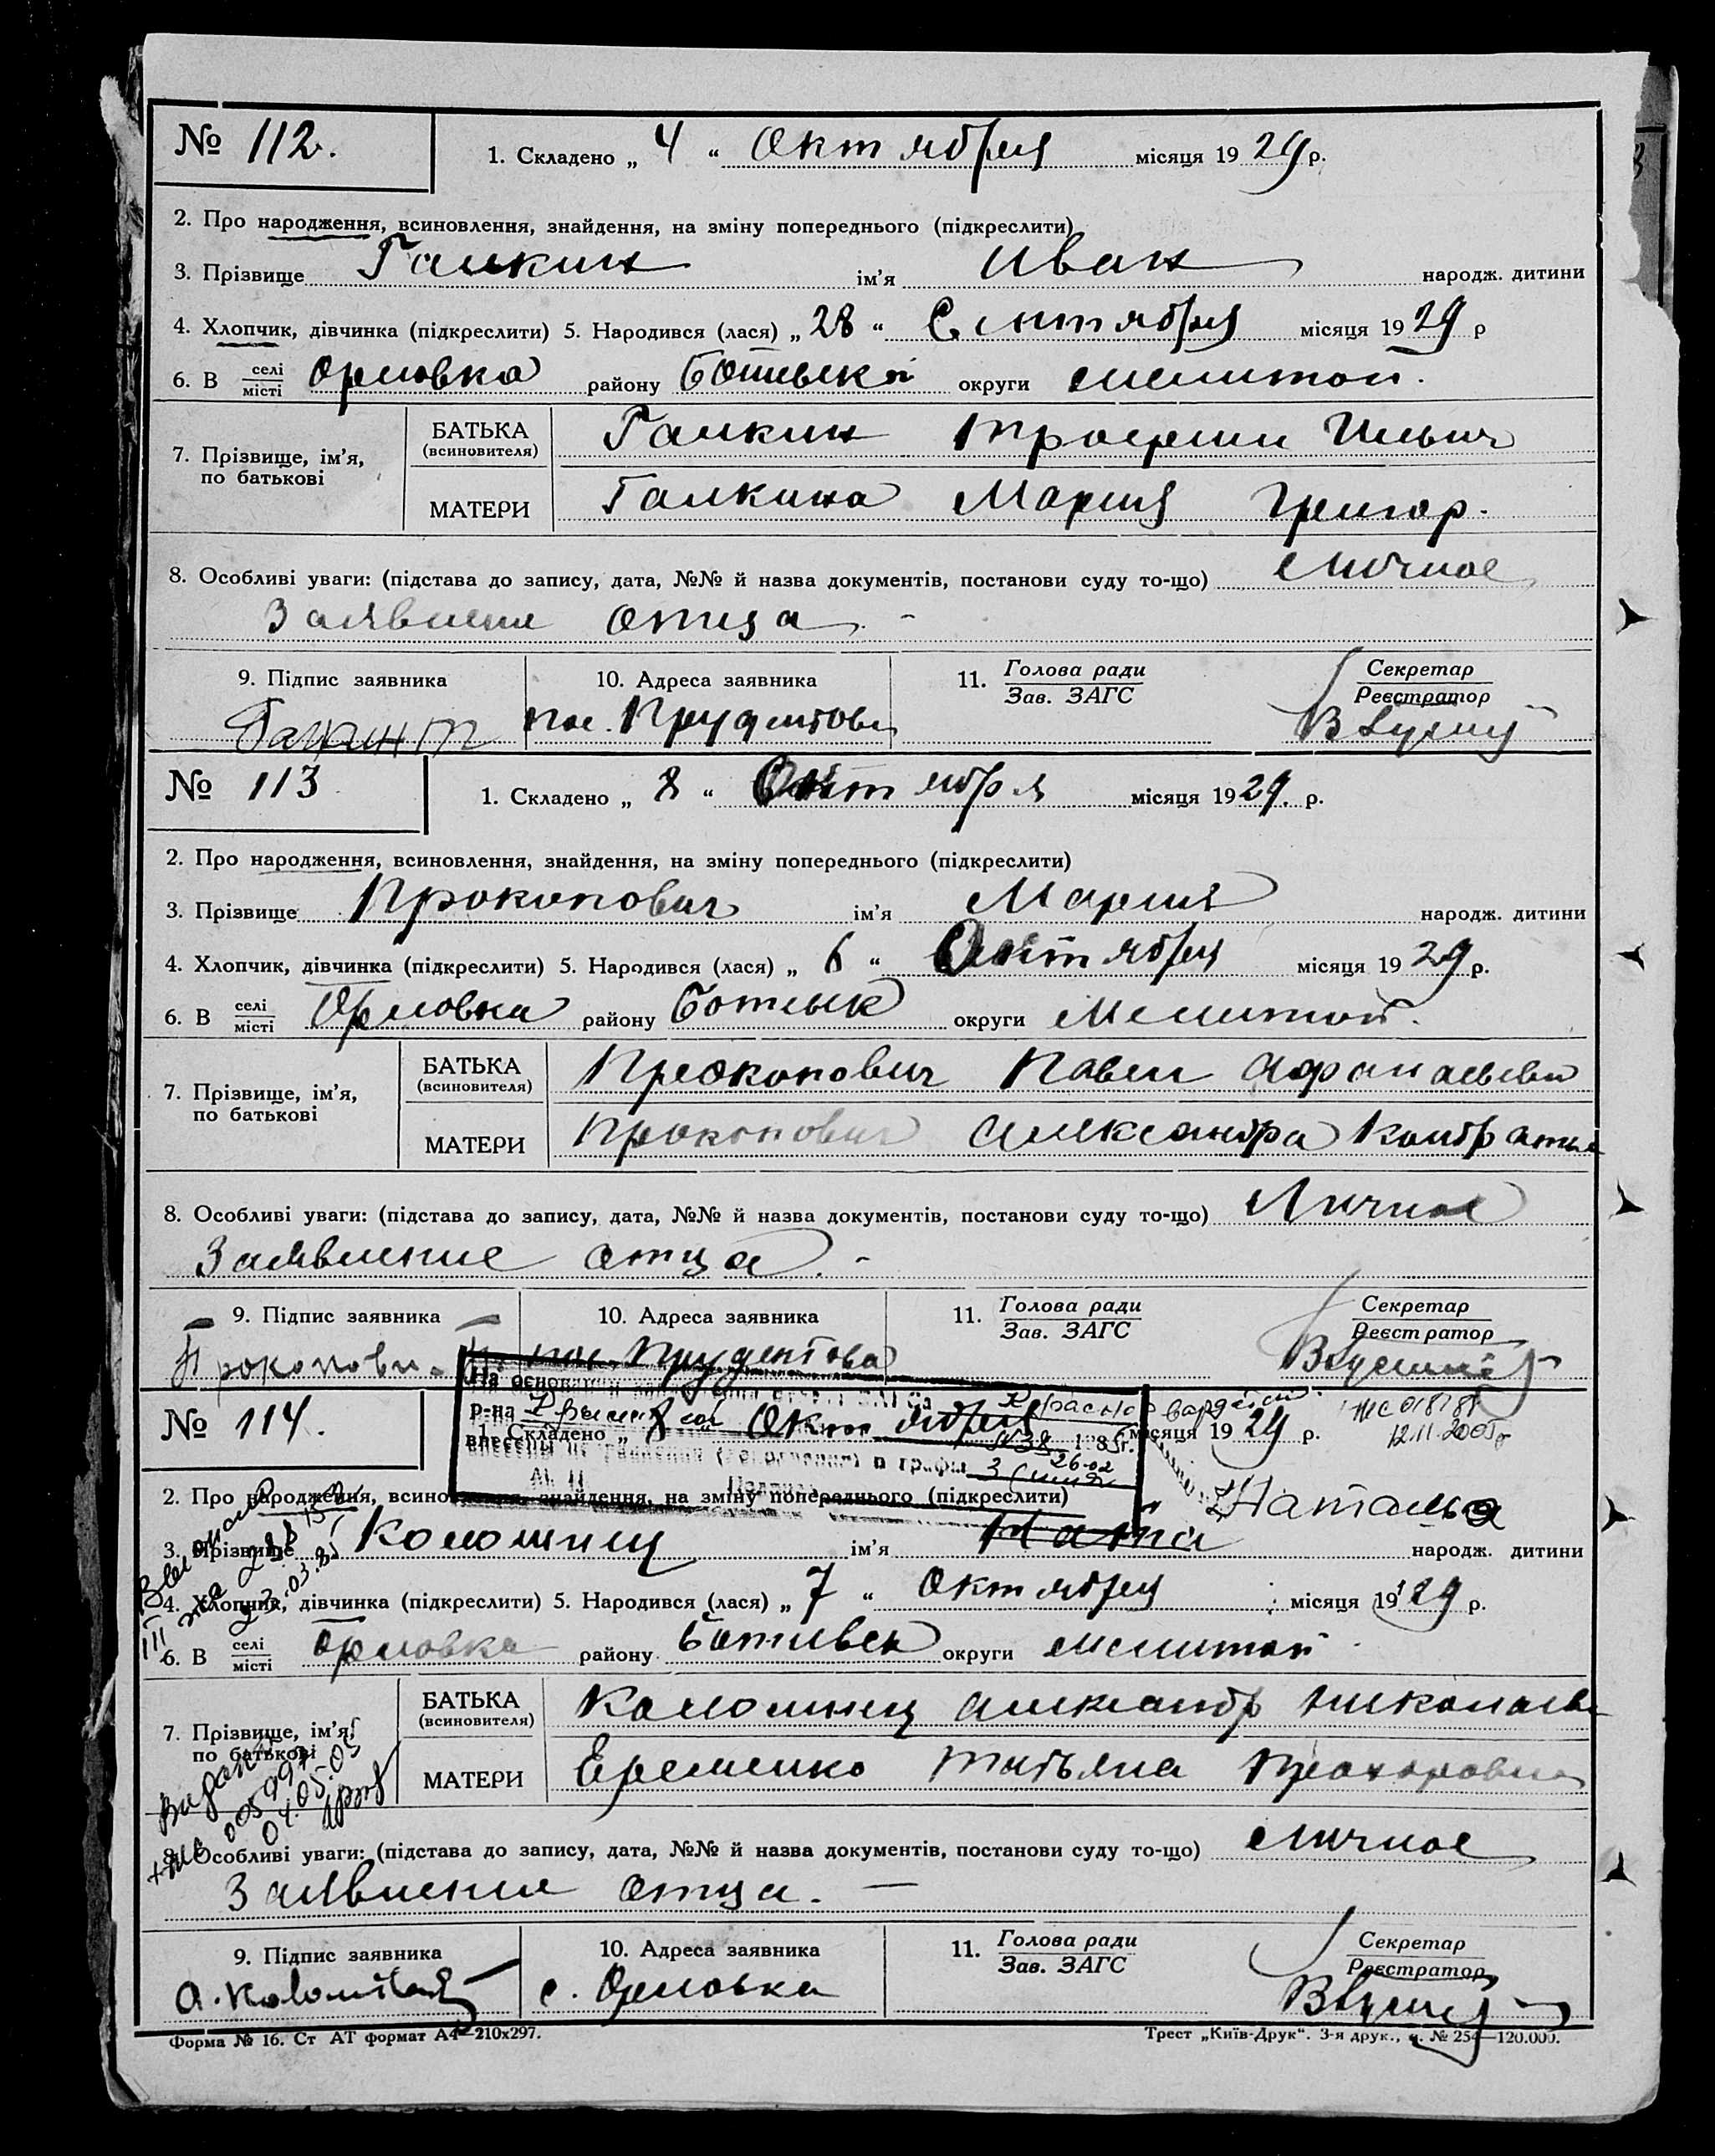 № 112.
1. Складено „ 4 “ Октября місяця 1929 р.
2. Про народження, всиновлення, знайдення, на зміну попереднього (підкреслити)
3. Прізвище Галкин ім’я Иван народж. дитини
4. Хлопчик, дівчинка (підкреслити) 5. Народився (лася) „ 28 “ Сентября місяця 1929 р
6. В селі/місті Орловка району округи Мелитоп.
7. Прізвище, ім’я, по батькові
БАТЬКА (всиновителя) Галкин Трофим Ильич
МАТЕРИ Галкина Мария Григор.
8. Особливі уваги: (підстава до запису, дата, №№ й назва документів, постанови суду то-що) Личное
Заявление отца. -
9. Підпис заявника 10. Адреса заявника 11. Голова ради/Зав. ЗАГС Секретар/Реєстратор
пос.
№ 113
1. Складено „ 8 “ Октября місяця 1929. р.
2. Про народження, всиновлення, знайдення, на зміну попереднього (підкреслити)
3. Прізвище Прокопович ім’я Мария народж. дитини
4. Хлопчик, дівчинка (підкреслити) 5. Народився (лася) „ 6 “ Октября місяця 1929 р.
6. В селі/місті Орловка району округи Мелитоп.
7. Прізвище, ім’я, по батькові
БАТЬКА (всиновителя) Прокопович Павел
МАТЕРИ Прокопович Александра
8. Особливі уваги: (підстава до запису, дата, №№ й назва документів, постанови суду то-що) Личное
Заявление отца. -
9. Підпис заявника 10. Адреса заявника 11. Голова ради/Зав. ЗАГС Секретар/Реєстратор
пос.
На основании
р-на
№ 114.
1. Складено „ 8 “ Октября місяця 1929 р.
12.11.2005
в графы 3
26-02
2. Про народження, всиновлення, знайдення, на зміну попереднього (підкреслити)
Наталья
3. Прізвище Коломиец ім’я народж. дитини
4. Хлопчик, дівчинка (підкреслити) 5. Народився (лася) „ 7 “ Октября місяця 1929 р.
6. В селі/місті Орловка району округи Мелитоп
7. Прізвище, ім’я, по батькові
БАТЬКА (всиновителя) Коломиец Александр
МАТЕРИ Еременко Татьяна Прохоровна
8. Особливі уваги: (підстава до запису, дата, №№ й назва документів, постанови суду то-що) Личное
Заявление отца. —
9. Підпис заявника 10. Адреса заявника 11. Голова ради/Зав. ЗАГС Секретар/Реєстратор
с. Орловка
Форма № 16. Ст АТ формат А4—210х297. Трест „Київ-Друк“. 3-я друк., з. № 254—120.000.